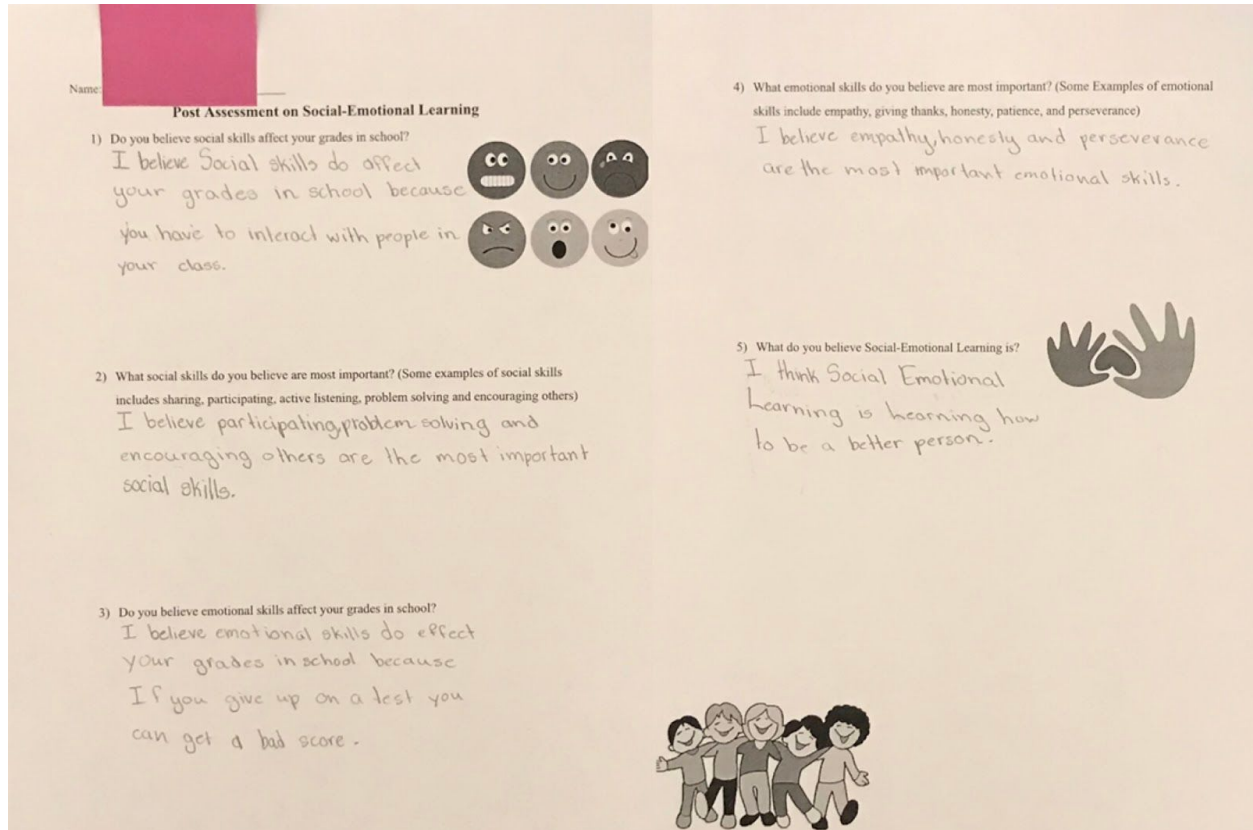 Name:
Post Assessment on Social-Emotional Learning
1) Do you believe social skills affect your grades in school?
I believe Social skills do affect
your grades in school because
you have to interact with people in
your class.
2) What social skills do you believe are most important? (Some examples of social skills
includes sharing, participating, active listening, problem solving and encouraging others)
I believe participating, problem solving and
encouraging others are the most important
social skills.
3) Do you believe emotional skills affect your grades in school?
I believe emotional skills do effect
your grades in school because
If you give up on a test you
can get a bad score.
4) What emotional skills do you believe are most important? (Some Examples of emotional
skills include empathy, giving thanks, honesty, patience, and perseverance)
I believe empathy, honesty and perseverance
are the most important emotional skills.
5) What do you believe Social-Emotional Learning is?
I think Social Emotional
Learning is Learning how
to be a better person.